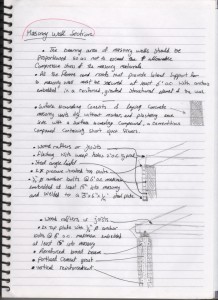 Masonry Wall Sections
• The bearing area of masonry walls should be
proportioned so as not to exceed the allowable
compressive stress of the masonry materials.
• As the floors and roofs must provide lateral support for
a masonry wall must be anchored at least 6' o.c. with anchors
embedded in a reinforced, grouted structural element of the wall.
• Surface bonding consists of laying concrete
masonry units dry, without mortar, and plastering each
side with a surface bonding compound, a cementitious
compound containing short glass fibers.
• Wood rafters or joists
• Flashing with weep holes
• Steel angle lintel
• 2X pressure treated top plate
• ½" ø anchor bolts @ 6' o.c. maximum
embedded at least 15" into masonry
and welded to a
• Wood rafters or joists
• 2x top plate with ½" ø anchor
bolts @ 6' o.c. maximum embedded
at least 15" into masonry
• Reinforced bond beam
• Portland cement grout
• Vertical reinforcement